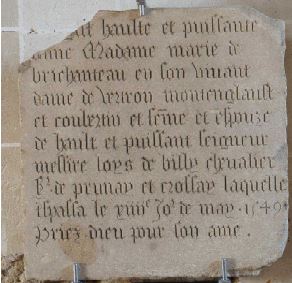 hault haulte et puissante
dame Madame marie de
brichanteau en son vivant
dame de vertron montenglaust
et coulertin et fēme et espouze
de hault et puissant seigneur
messire loys de billy chevalier
sr de prunay et crossay laquelle
trespassa le xiiiie Jor de may · 1549
Priez dieu pour son ame .